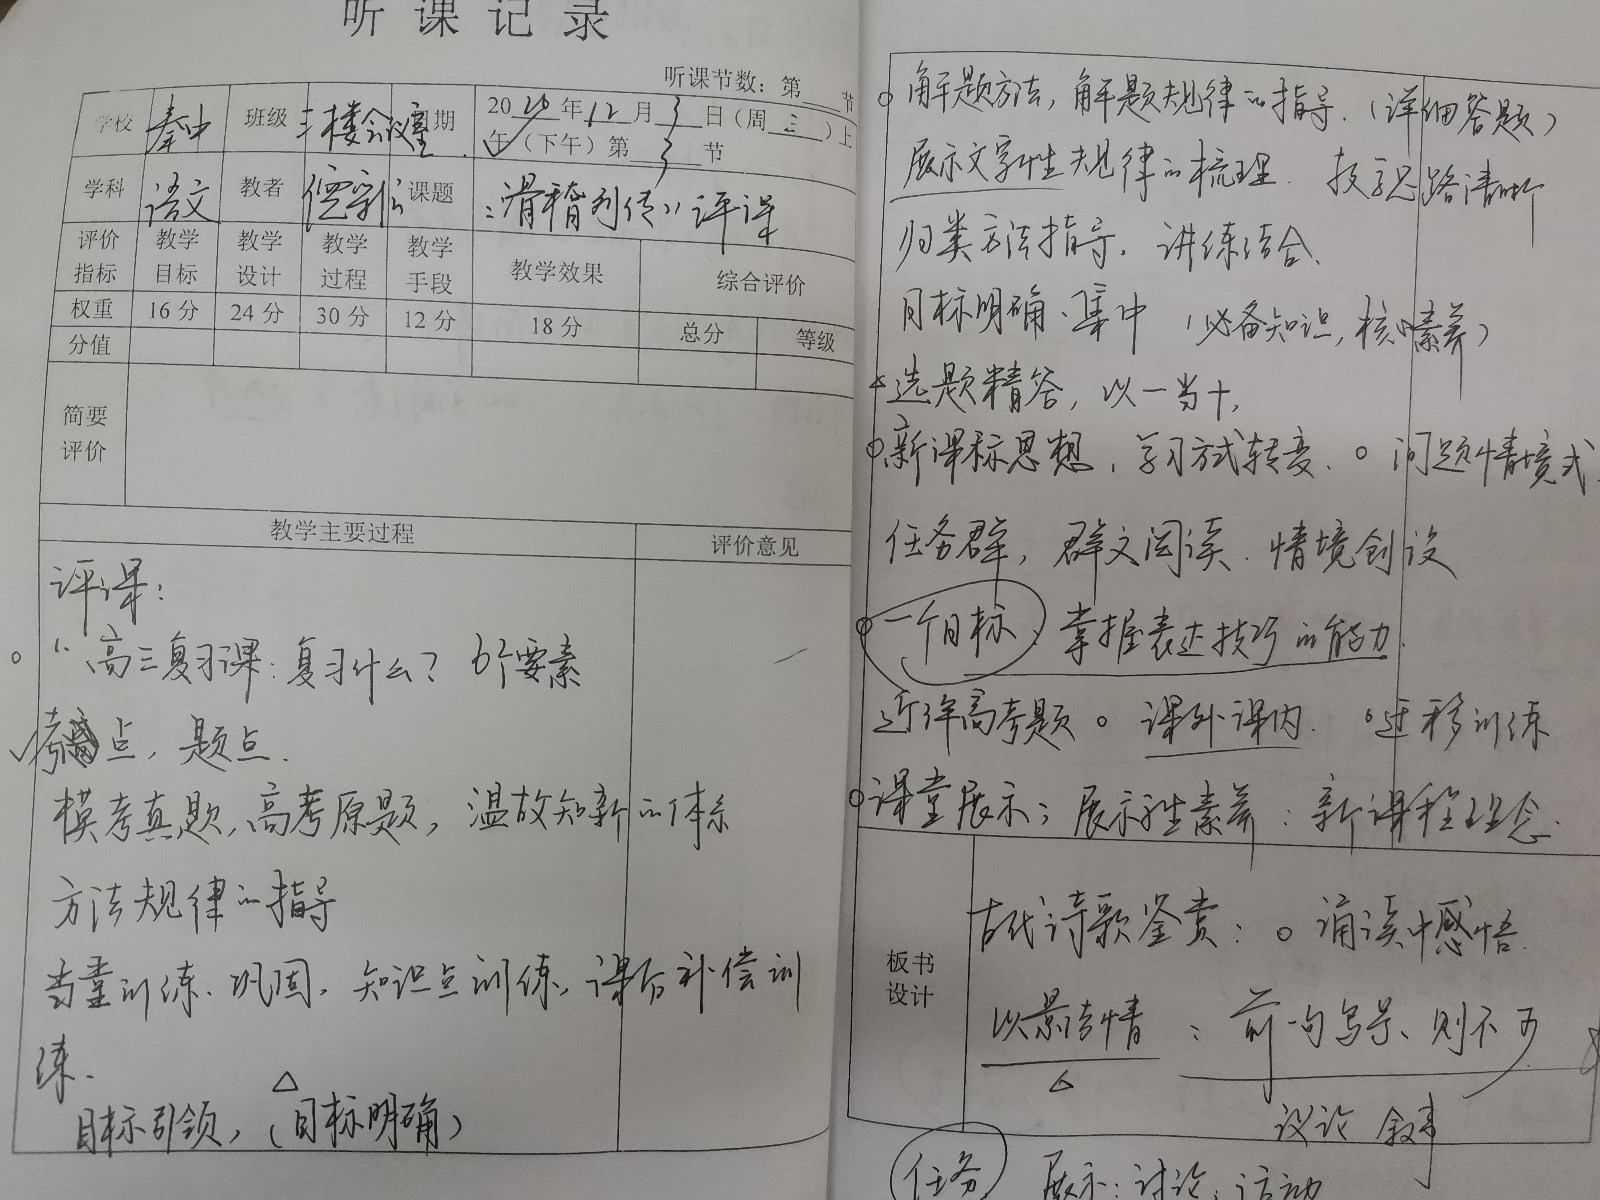 听课记录
听课节数：第 节
学校 秦中 班级 三楼会议室 日期 2020年12月3日（周三）上
午（下午）第3节
学科 语文 教者 课题 《滑稽列传》评课
评价指标 教学目标 教学设计 教学过程 教学手段 教学效果 综合评价
权重 16分 24分 30分 12分 18分 总分 等级
分值
简要评价
教学主要过程 评价意见
评课：
1. 高三复习课：复习什么？6个要素
考点，题点.
模考真题，高考原题，温故知新的体系
方法规律的指导
当堂训练、巩固，知识点训练，课后补偿训
练.
目标引领，（目标明确）
解题方法，解题规律的指导.（详细答题）
展示文字性规律的梳理. 教学思路清晰
归类方法指导，讲练结合.
目标明确、集中（必备知识，核心素养）
选题精答，以一当十，
新课标思想，学习方式转变. 问题情境式.
任务群，群文阅读. 情境创设
一个目标：掌握表达技巧的能力.
近年高考题 课外课内. 迁移训练
课堂展示；展示学生素养：新课程理念.
板书设计
古代诗歌鉴赏：诵读中感悟.
以景结情：前一句写景、则不可
议论 叙事
任务 展示：讨论；活动